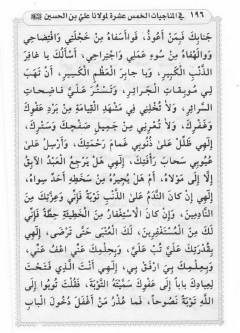 ١٩٦ في المناجيات الخمس عشرة لمولانا علي بن الحسين
جَنابِكَ فَبِمَنْ أَعُوذُ، فَواأَسَفاهُ مِنْ خَجْلَتِي وَافْتِضاحِي
وَوالَهْفاهُ مِنْ سُوءِ عَمَلِي وَاجْتِراحِي، أَسْأَلُكَ يا غافِرَ
الذَّنْبِ الْكَبِيرِ، وَيا جابِرَ الْعَظْمِ الْكَسِيرِ، أَنْ تَهَبَ
لِي مُوبِقاتِ الْجَرائِرِ، وَتَسْتُرَ عَلَيَّ فاضِحاتِ
السَّرائِرِ، وَلا تُخْلِنِي فِي مَشْهَدِ الْقِيامَةِ مِنْ بَرْدِ عَفْوِكَ
وَغَفْرِكَ، وَلا تُعْرِنِي مِنْ جَمِيلِ صَفْحِكَ وَسَتْرِكَ،
إِلٰهِي ظَلِّلْ عَلىٰ ذُنُوبِي غَمامَ رَحْمَتِكَ، وَأَرْسِلْ عَلىٰ
عُيُوبِي سَحابَ رَأْفَتِكَ، إِلٰهِي هَلْ يَرْجِعُ الْعَبْدُ الآبِقُ
إِلَّا إِلىٰ مَوْلاهُ، أَمْ هَلْ يُجِيرُهُ مِنْ سَخَطِهِ أَحَدٌ سِواهُ،
إِلٰهِي إِنْ كانَ النَّدَمُ عَلَى الذَّنْبِ تَوْبَةً فَإِنِّي وَعِزَّتِكَ مِنَ
النَّادِمِينَ، وَإِنْ كانَ الاسْتِغْفارُ مِنَ الْخَطِيئَةِ حِطَّةً فَإِنِّي
لَكَ مِنَ الْمُسْتَغْفِرِينَ، لَكَ الْعُتْبىٰ حَتّىٰ تَرْضىٰ، إِلٰهِي
بِقُدْرَتِكَ عَلَيَّ تُبْ عَلَيَّ، وَبِحِلْمِكَ عَنِّي اعْفُ عَنِّي،
وَبِعِلْمِكَ بِي ارْفَقْ بِي، إِلٰهِي أَنْتَ الَّذِي فَتَحْتَ
لِعِبادِكَ باباً إِلىٰ عَفْوِكَ سَمَّيْتَهُ التَّوْبَةَ، فَقُلْتَ تُوبُوا إِلَى
اللهِ تَوْبَةً نَصُوحاً، فَما عُذْرُ مَنْ أَغْفَلَ دُخُولَ الْبابِ